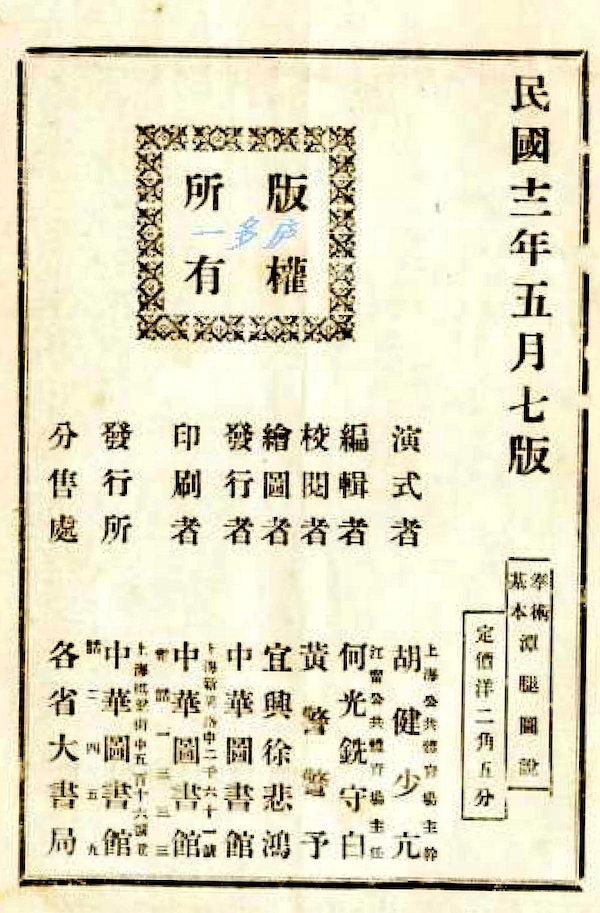 民國十二年五月七版
拳術
基本
潭腿圖說
定價洋二角五分
版權
所有
一多庐
演式者 上海公共體育場主幹
胡健少亢
編輯者 公共體育場主任
何光銑守白
校閱者 黃警警予
繪圖者 宜興徐悲鴻
發行者 中華圖書館
印刷者 上海路中二千六十一號
中華圖書館
電話一三三三
發行所 上海棋盤街中五百十六號
中華圖書館
話二四五九
分售處 各省大書局